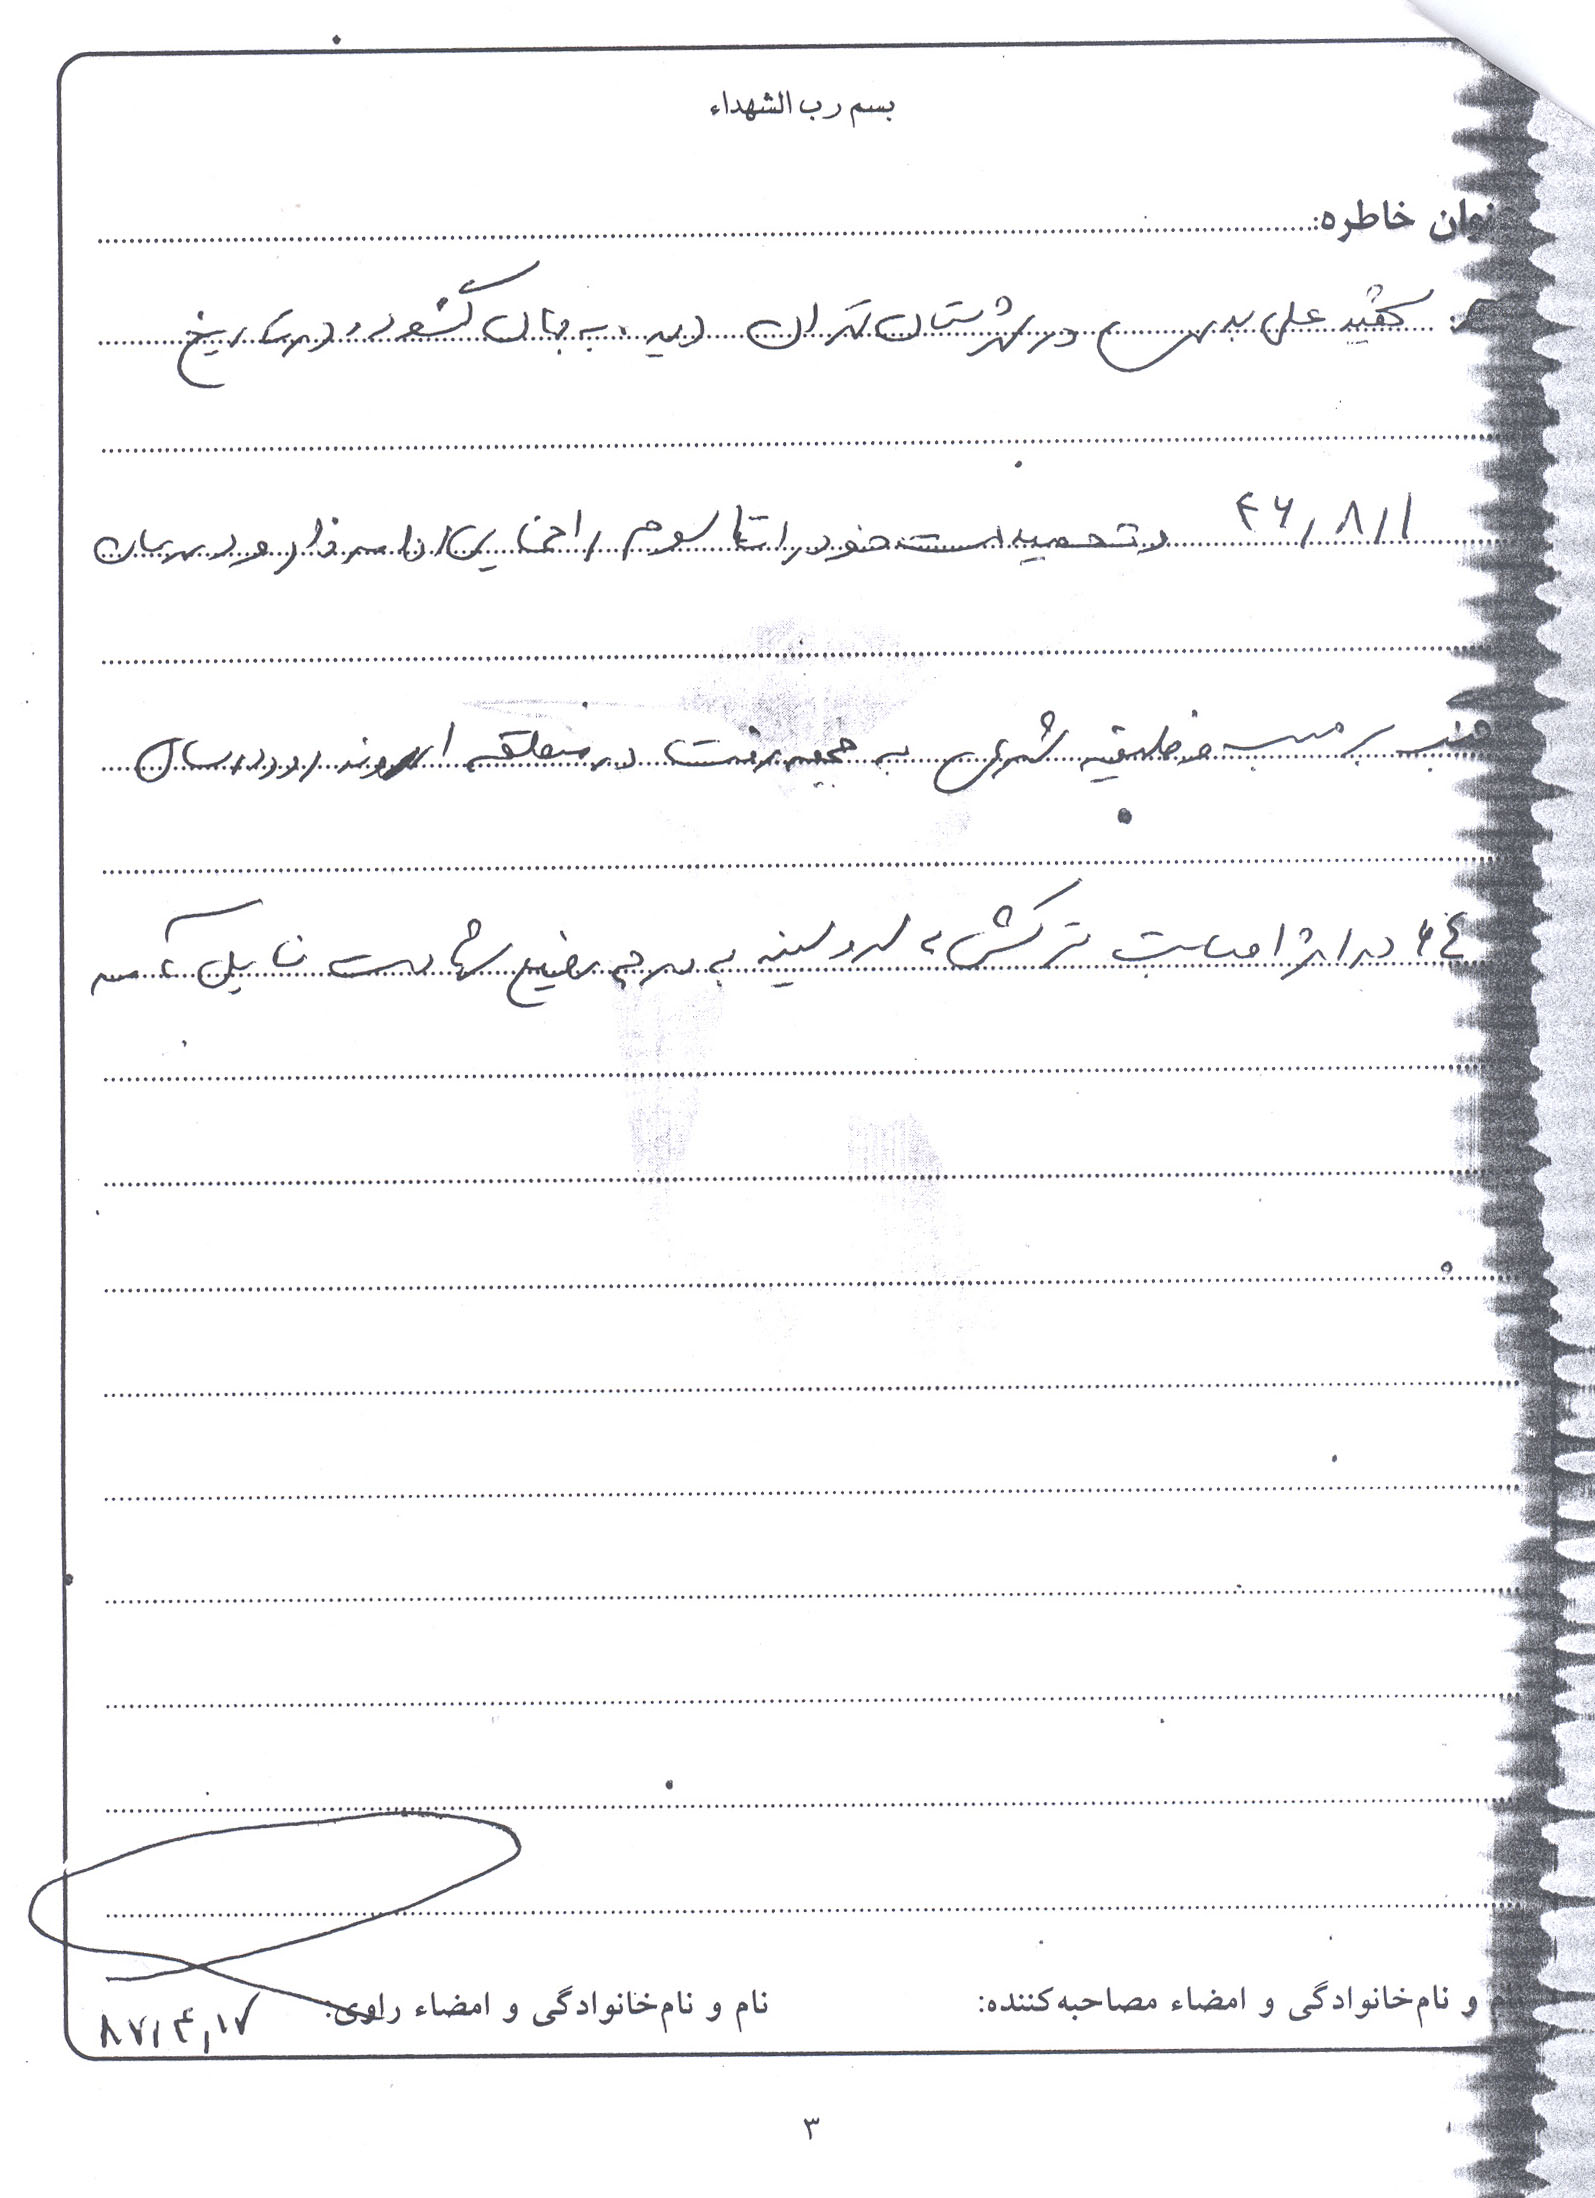 بسم رب الشهداء
عنوان خاطره:
علی در شهرستان تهران دیده به جهان گشود و در تاریخ
۴۶/۸/۱ و تحصیلات خود را تا سوم راهنمایی ادامه داد و در
بر حسب وظیفه شرعی به جبهه رفت در منطقه اروند رود در سال
۶۴ در اثر اصابت ترکش به سر و سینه به درجه رفیع شهادت نایل آمد
نام و نام‌خانوادگی و امضاء مصاحبه‌کننده:
نام و نام‌خانوادگی و امضاء راوی:
۸۷/۴/۱۷
۳